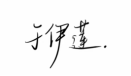 于伊莲.